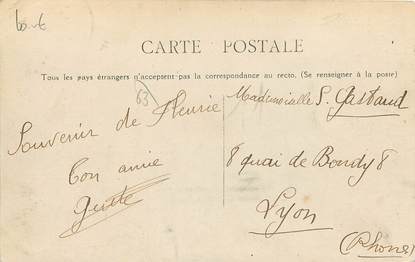 CARTE POSTALE
Tous les pays étrangers n'acceptent pas la correspondance au recto. (Se renseigner à la poste)
63
Souvenir de Fleurie
Ton amie
Mademoiselle S. Gastaud
8 quai de Bondy 8
Lyon
(Rhône)